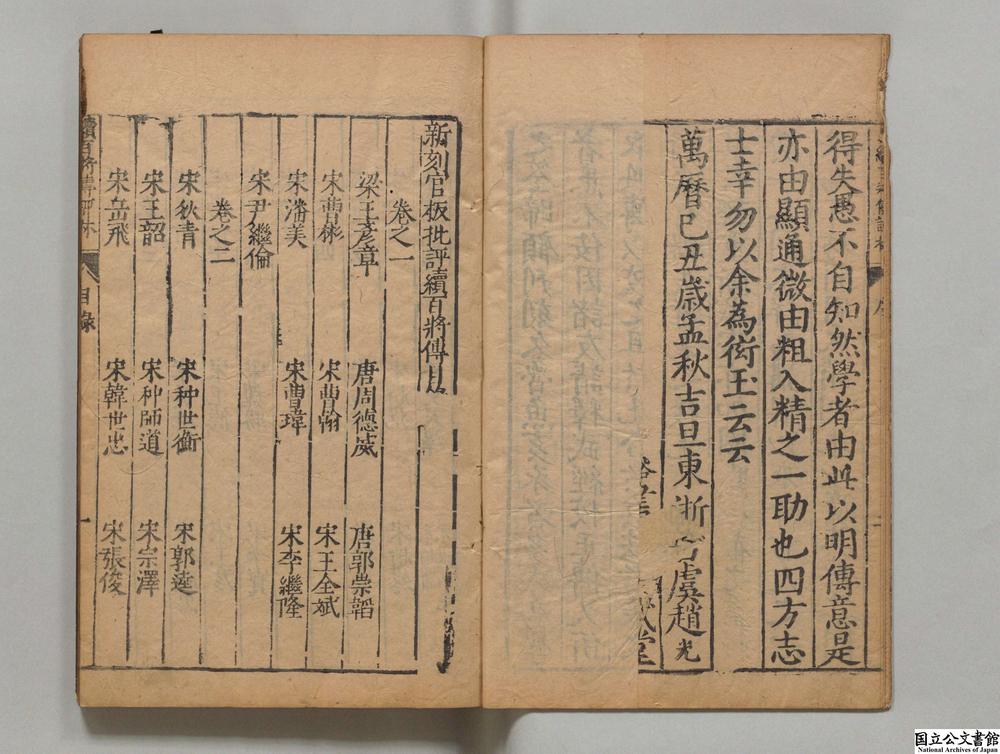 得失愚不自知然學者由此以明傳意是
亦由顯通微由粗入精之一助也四方志
士幸勿以余為衒玉云云
萬曆已丑歲孟秋吉旦東浙虞趙光
堂
新刻官板批評續百將傳目
卷之一
梁王彥章 唐周德威 唐郭崇韜
宋曹彬 宋曹翰 宋王全斌
宋潘美 宋曹瑋 宋李繼隆
宋尹繼倫
卷之二
宋狄青 宋种世衡 宋郭逵
宋王韶 宋种師道 宋宗澤
宋岳飛 宋韓世忠 宋張俊
續百將傳評林 目錄 一
国立公文書館
National Archives of Japan